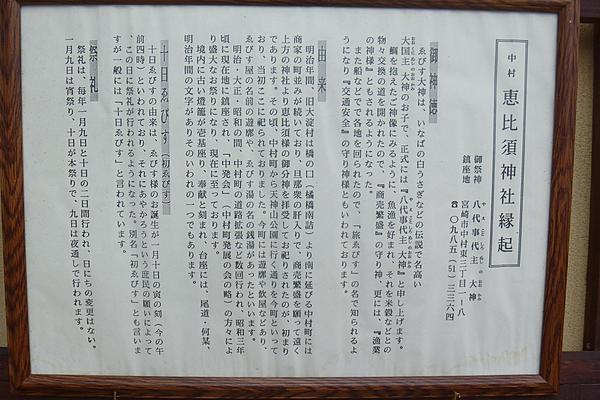 中村 恵比須神社縁起
御祭神 八代事代主 大神
鎮座地 宮崎市中村東三丁目一ー八
☎〇九八五(51)三三六四
御神徳
ゑびす大神は、いなばの白うさぎなどの伝説で名高い
大国主 大神のお子で、正式には『八代事代主 大神』と申し上げます。
鯛を抱えたご神像にみるように、魚漁を好まれ、それを米穀などとの
物々交換の道を開かれたので、『商売繁盛』の守り神、更には、『漁業
の神様』ともされるようになった。
また船などで各地を回られたので、「旅ゑびす」の名で知られるよ
うになり『交通安全』の守り神様ともいわれております。
由来
明治年間、旧大淀村は橋の口（橘橋南詰）より南に延びる中村町には
商家の町並みが続いており、旦那衆の肝入りで、商売繁盛を願って遠く
上方の神社より恵比須様の御分神を拝受してお祀りされたのが、初まり
であります。その頃、中村町から天神山公園に行く通りを今町といって
おり、当初ここに祀られておりました。今町には遊廓や飲屋などあり、
ゑびす屋の名前の遊廓や、ゑびす湯の名の銭湯があったといいます。
明治、大正、昭和の間、中村町の道路拡張など数回行われ、昭和三年
頃に現在地に鎮座され、「中発会」（中村町発展の会の略）の方々によ
り盛大なお祭りになり、現在に至っております。
境内に古い燈籠が壱基座り、奉献と刻まれ、台座には、尾道・何某、
明治年間の文字がありそのいわれの一つでもあります。
十日ゑびす（初ゑびす）
十日ゑびすの由来は、ゑびす様の御誕生が一月十日の寅の刻（今の午
前四時）といわれており、それにあやかろうという庶民の願いによって
、この日に祭礼が行われるようになった。別名「初ゑびす」とも言いま
すが一般には「十日ゑびす」と言われています。
祭礼
祭礼は、毎年一月九日と十日の二日間行われ、日にちの変更はない。
一月九日は宵祭り、十日が本祭りで、九日は夜通しで行われます。